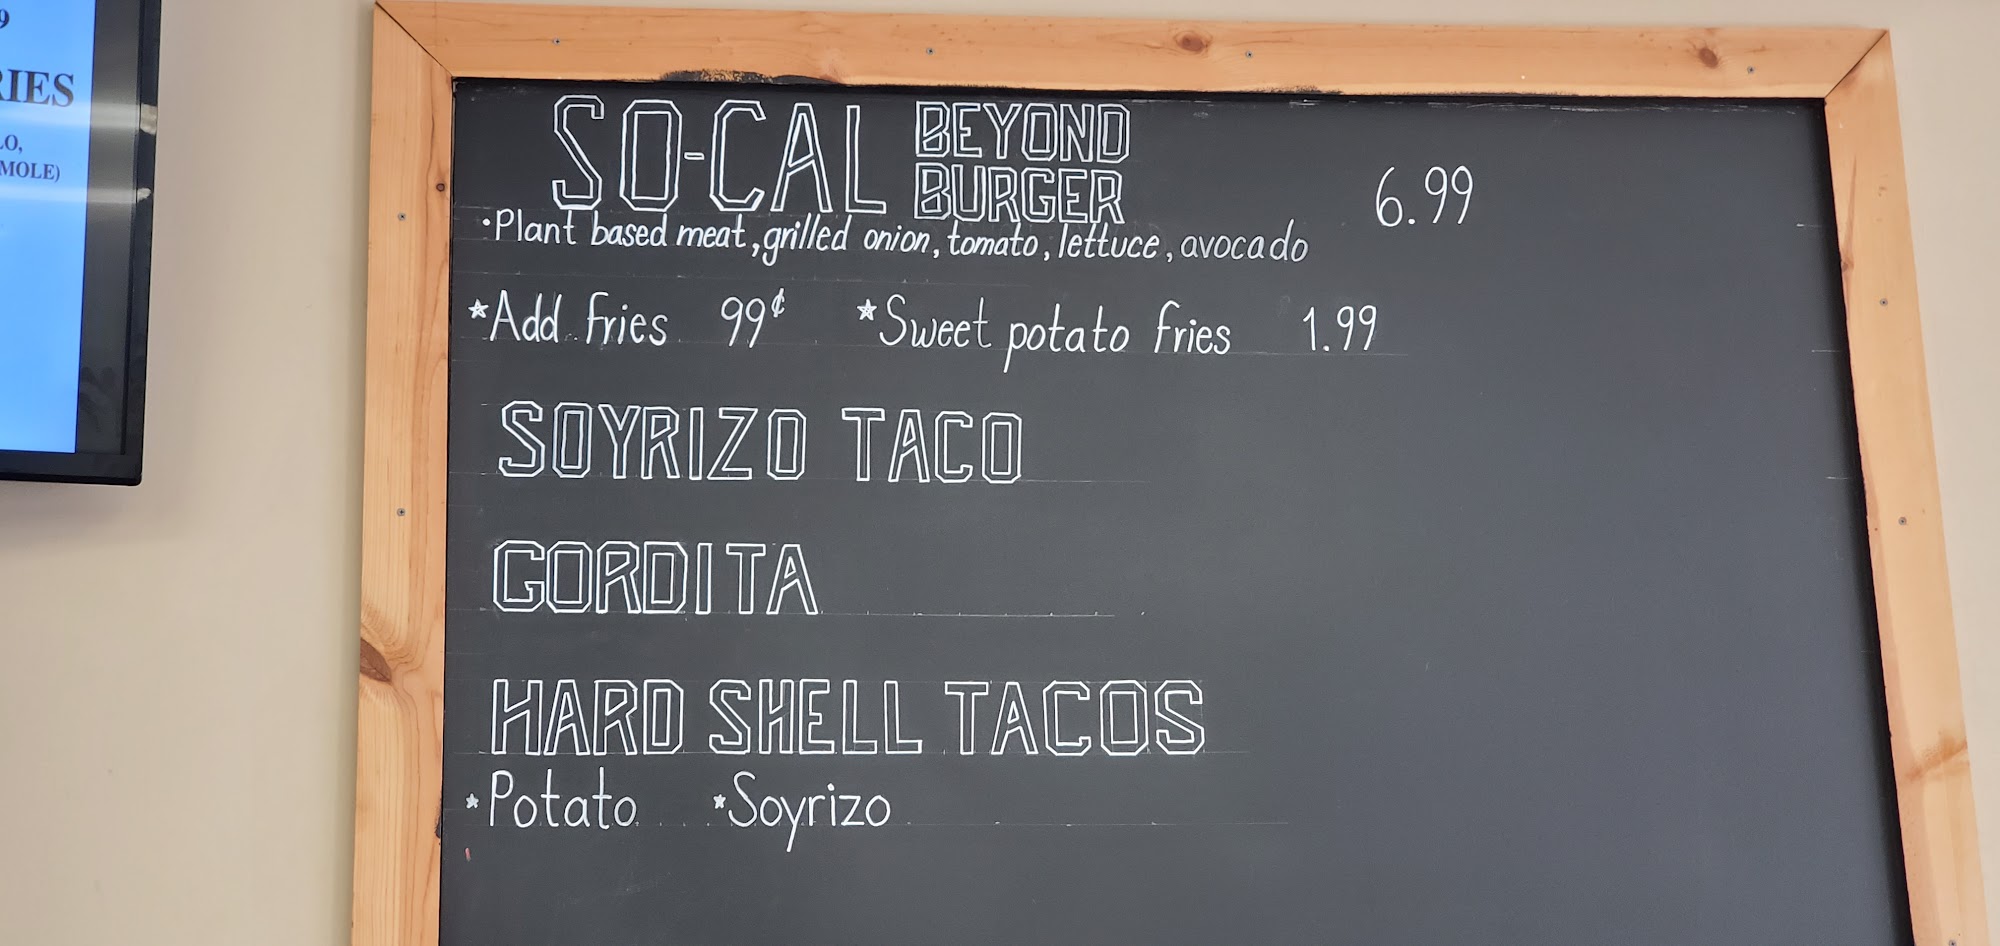 9
RIES
LO,
MOLE)
SO-CAL BEYOND BURGER 6.99
•Plant based meat, grilled onion, tomato, lettuce, avocado
*Add fries 99¢ *Sweet potato fries 1.99
SOYRIZO TACO
GORDITA
HARD SHELL TACOS
*Potato *Soyrizo